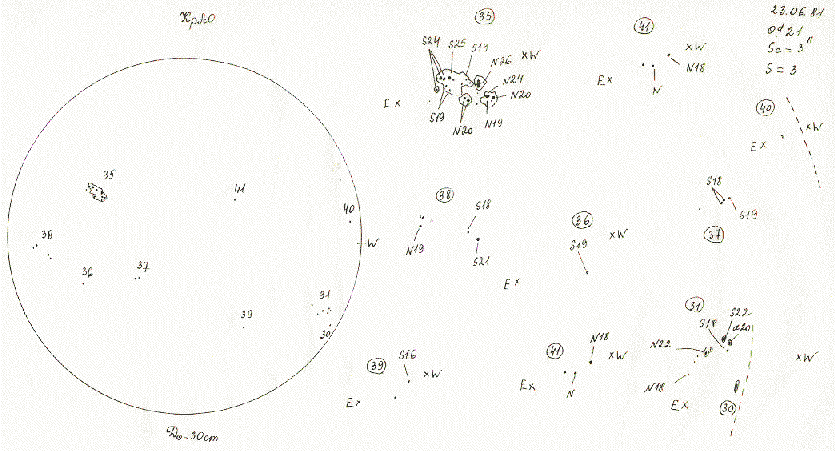 35
41
23.06.81
S = 3
S24
S25
S19
N26
XW
N24
N20
EX
S19
N20
N19
EX
XW
N18
N
40
XW
EX
35
41
40
W
38
36
37
39
31
30
38
S18
N19
S21
EX
36
S19
XW
S18
S19
37
39
S16
XW
EX
41
N18
XW
EX
N
31
S22
S18
N22
N18
EX
30
XW